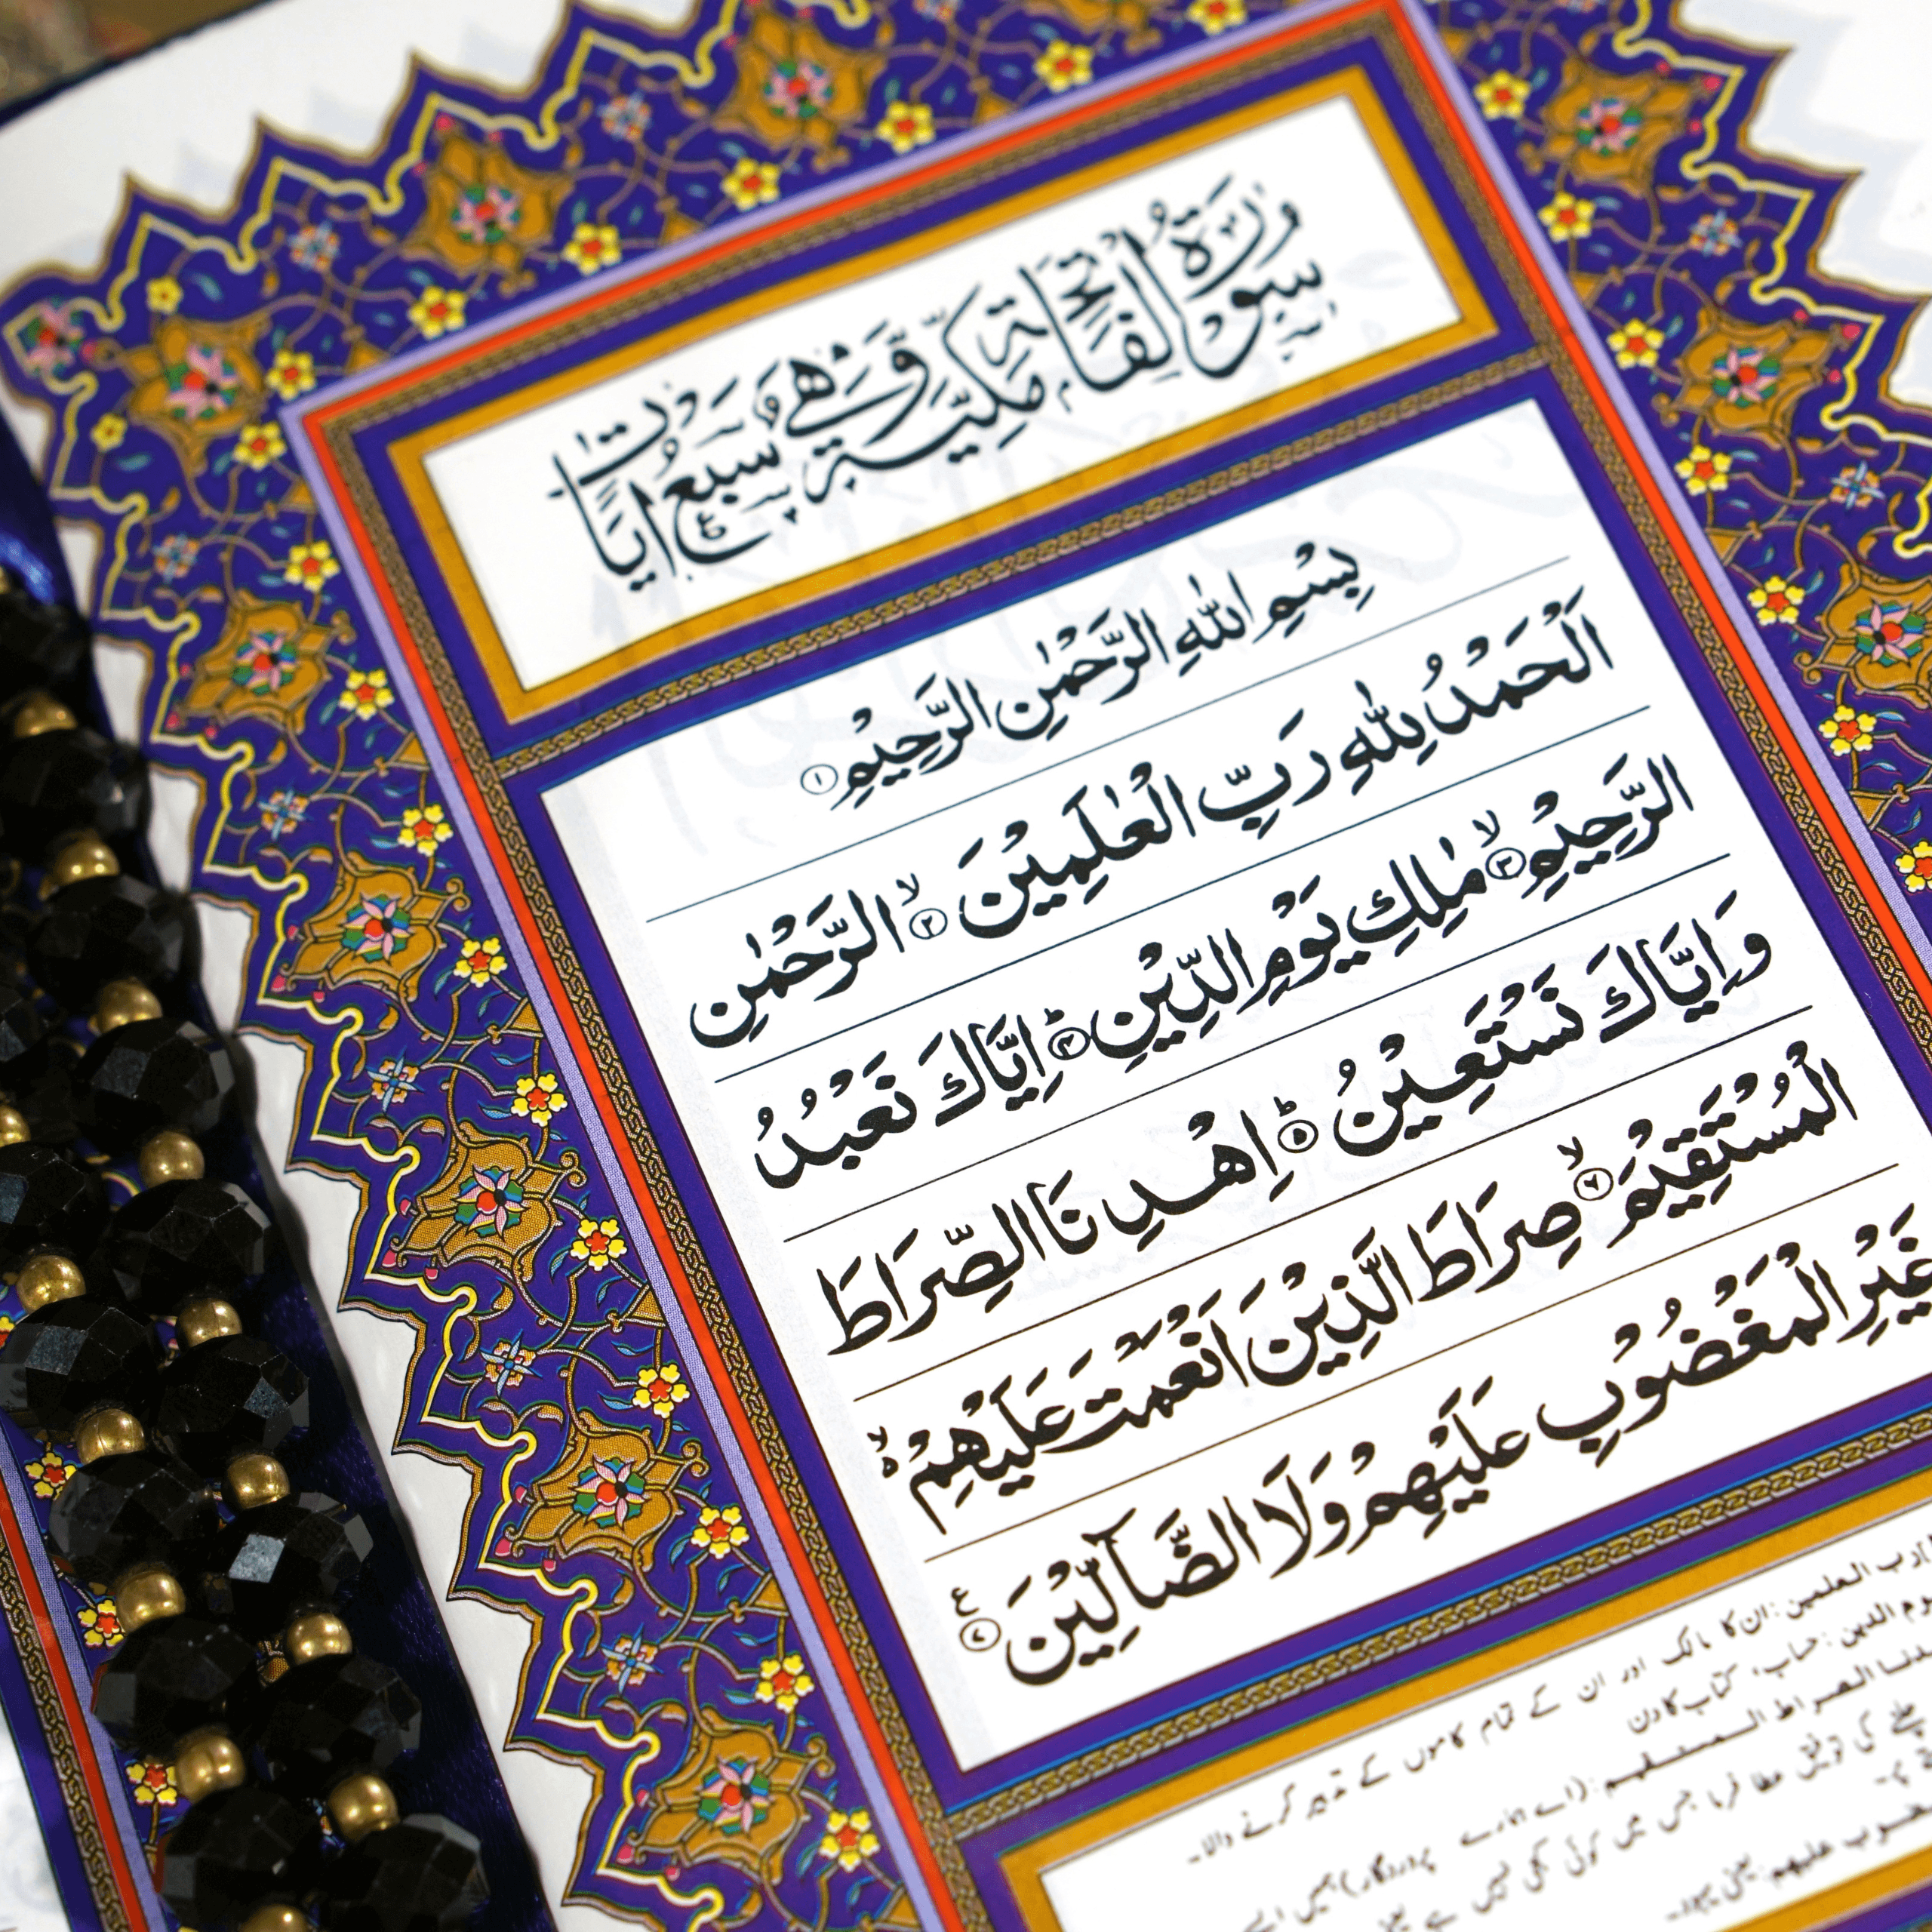 سُوْرَةُ الْفَاتِحَةِ مَكِّيَّةٌ وَّهِيَ سَبْعُ اٰيَاتٍ
بِسْمِ اللّٰهِ الرَّحْمٰنِ الرَّحِيْمِ ۝۱
اَلْحَمْدُ لِلّٰهِ رَبِّ الْعٰلَمِيْنَ ۝۲ۙ الرَّحْمٰنِ
الرَّحِيْمِ ۝۳ۙ مٰلِكِ يَوْمِ الدِّيْنِ ۝۴ؕ اِيَّاكَ نَعْبُدُ
وَاِيَّاكَ نَسْتَعِيْنُ ۝۵ؕ اِهْدِنَا الصِّرَاطَ
الْمُسْتَقِيْمَ ۝۶ۙ صِرَاطَ الَّذِيْنَ اَنْعَمْتَ عَلَيْهِمْ ۙ۬
غَيْرِ الْمَغْضُوْبِ عَلَيْهِمْ وَلَا الضَّآلِّيْنَ ۝۷ع
رب العلمین: ان کا مالک اور ان کے تمام کاموں کے تدبیر کرنے والا۔
یوم الدین: حساب، کتاب کا دن
الصراط المستقیم: (اے ہمارے پروردگار) ہمیں ایسے
چلنے کی توفیق عطا فرما جس میں کوئی کجی نہیں ہے یعنی
علیهم: یعنی یہود۔